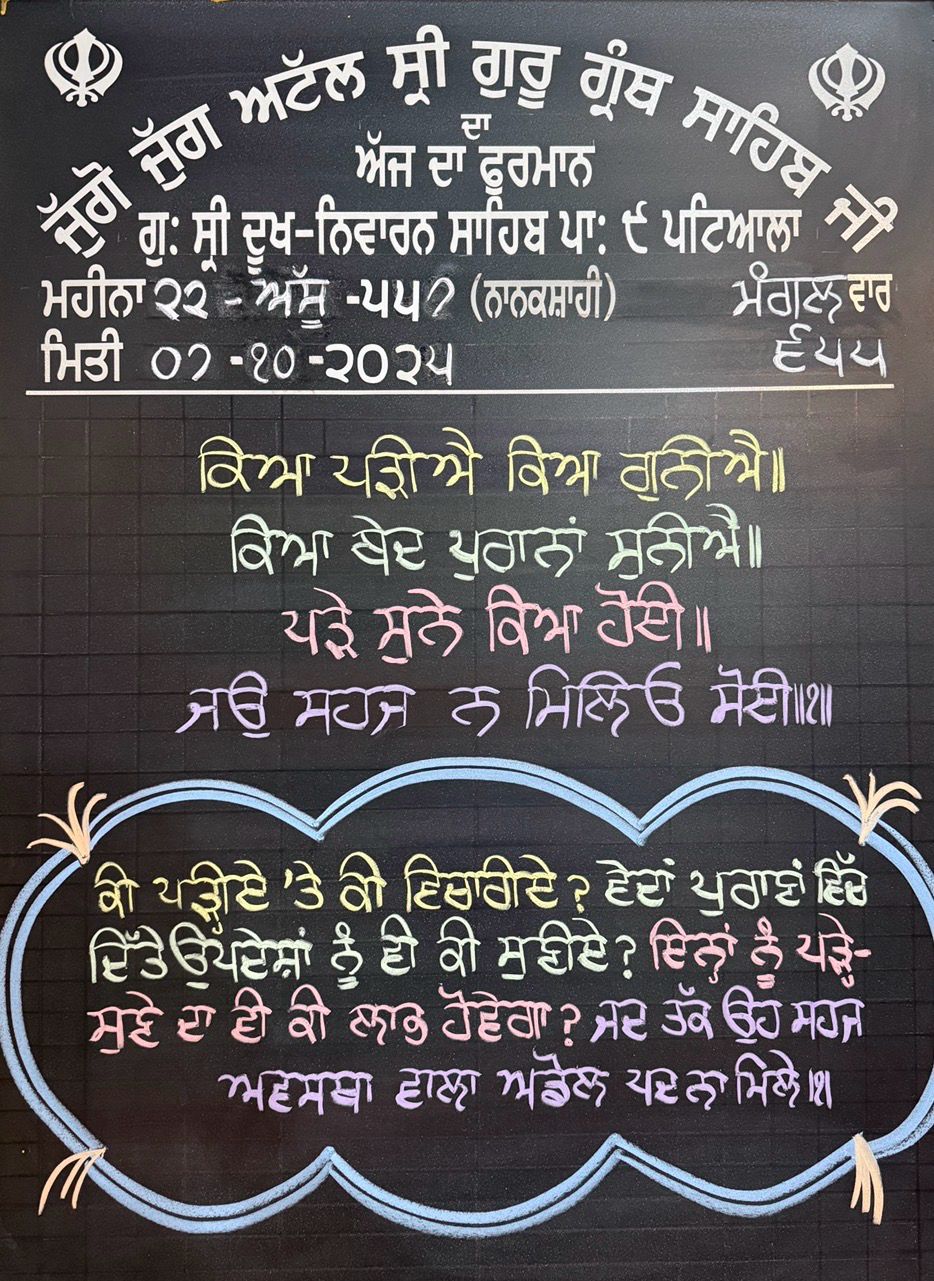 ਜੁੱਗੋ ਜੁੱਗ ਅਟੱਲ ਸ੍ਰੀ ਗੁਰੂ ਗ੍ਰੰਥ ਸਾਹਿਬ ਜੀ
ਦਾ
ਅੱਜ ਦਾ ਫੁਰਮਾਨ
ਗੁ: ਸ੍ਰੀ ਦੂਖ-ਨਿਵਾਰਨ ਸਾਹਿਬ ਪਾ: ੯ ਪਟਿਆਲਾ
ਮਹੀਨਾ ੨੨ - ਅੱਸੂ -੫੫੭ (ਨਾਨਕਸ਼ਾਹੀ) ਮੰਗਲ ਵਾਰ
ਮਿਤੀ ੦੭ -੧੦ -੨੦੨੫ ੬੫੫
ਕਿਆ ਪੜੀਐ ਕਿਆ ਗੁਨੀਐ॥
ਕਿਆ ਬੇਦ ਪੁਰਾਨਾਂ ਸੁਨੀਐ॥
ਪੜੇ ਸੁਨੇ ਕਿਆ ਹੋਈ॥
ਜਉ ਸਹਜ ਨ ਮਿਲਿਓ ਸੋਈ॥੧॥
ਕੀ ਪੜ੍ਹੀਏ 'ਤੇ ਕੀ ਵਿਚਾਰੀਏ? ਵੇਦਾਂ ਪੁਰਾਣਾਂ ਵਿੱਚ
ਦਿੱਤੇ ਉਪਦੇਸ਼ਾਂ ਨੂੰ ਵੀ ਕੀ ਸੁਣੀਏ? ਇਨ੍ਹਾਂ ਨੂੰ ਪੜ੍ਹੇ-
ਸੁਣੇ ਦਾ ਵੀ ਕੀ ਲਾਭ ਹੋਵੇਗਾ? ਜਦ ਤੱਕ ਉਹ ਸਹਜ
ਅਵਸਥਾ ਵਾਲਾ ਅਡੋਲ ਪਦ ਨਾ ਮਿਲੇ।੧।